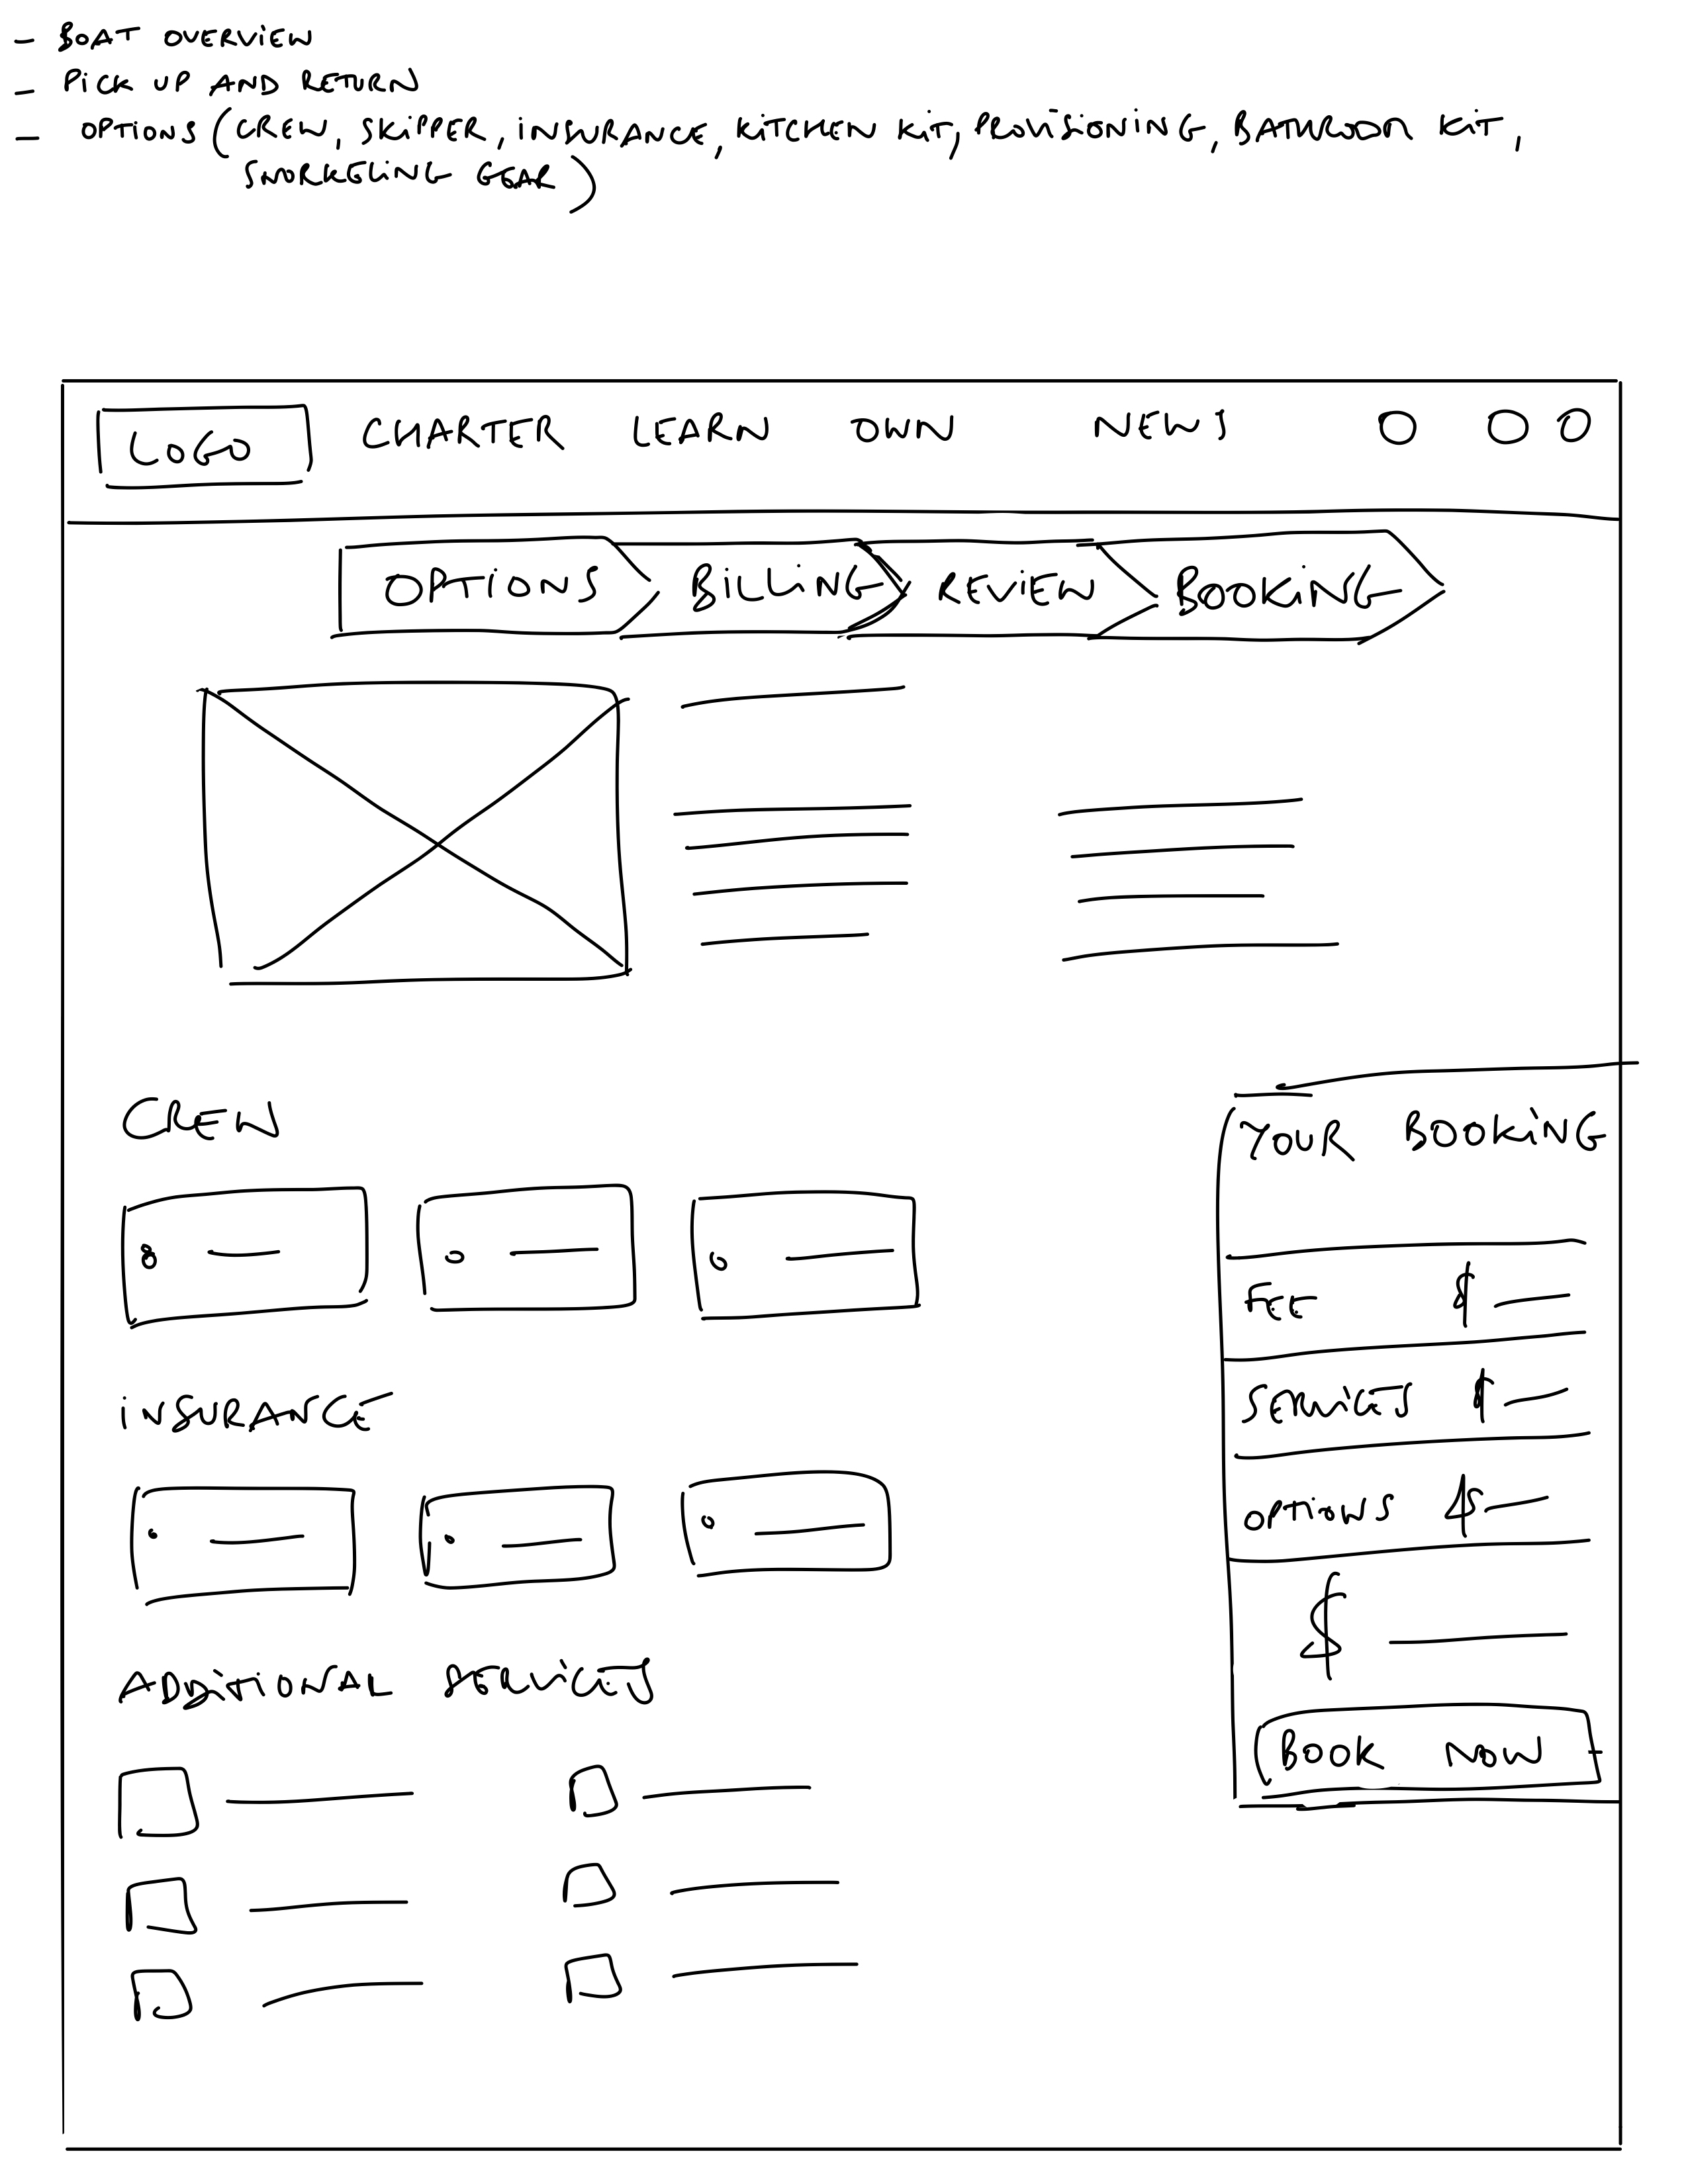 - BOAT OVERVIEW
- PICK UP AND RETURN
- OPTIONS (CREW, SKIPPER, INSURANCE, KITCHEN KIT, PROVISIONING, BATHROOM KIT,
SNORKELING GEAR)
LOGO CHARTER LEARN OWN NEWS
OPTIONS BILLING REVIEW BOOKING
CREW
YOUR BOOKING
FEE $
INSURANCE
SERVICES $
OPTIONS $
$
ADDITIONAL SERVICES
BOOK NOW